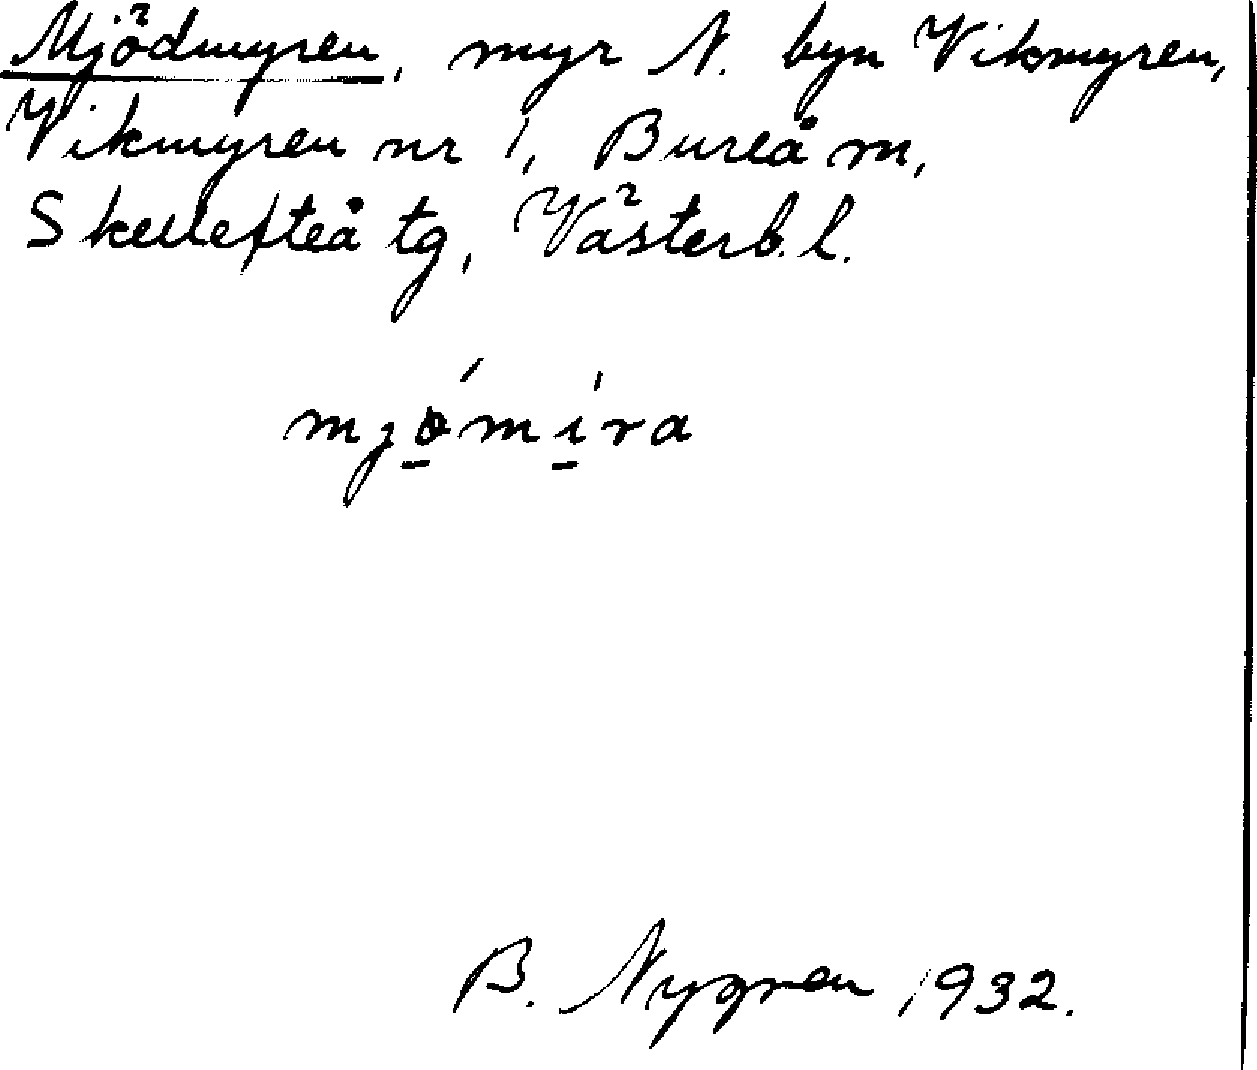 Mjödmyren, myr N. byn Vikmyren,
Vikmyren nr 1, Bureå m,
Skellefteå tg, Västerb. l.
mjǿ̱mí̱ra
B. Nygren 1932.